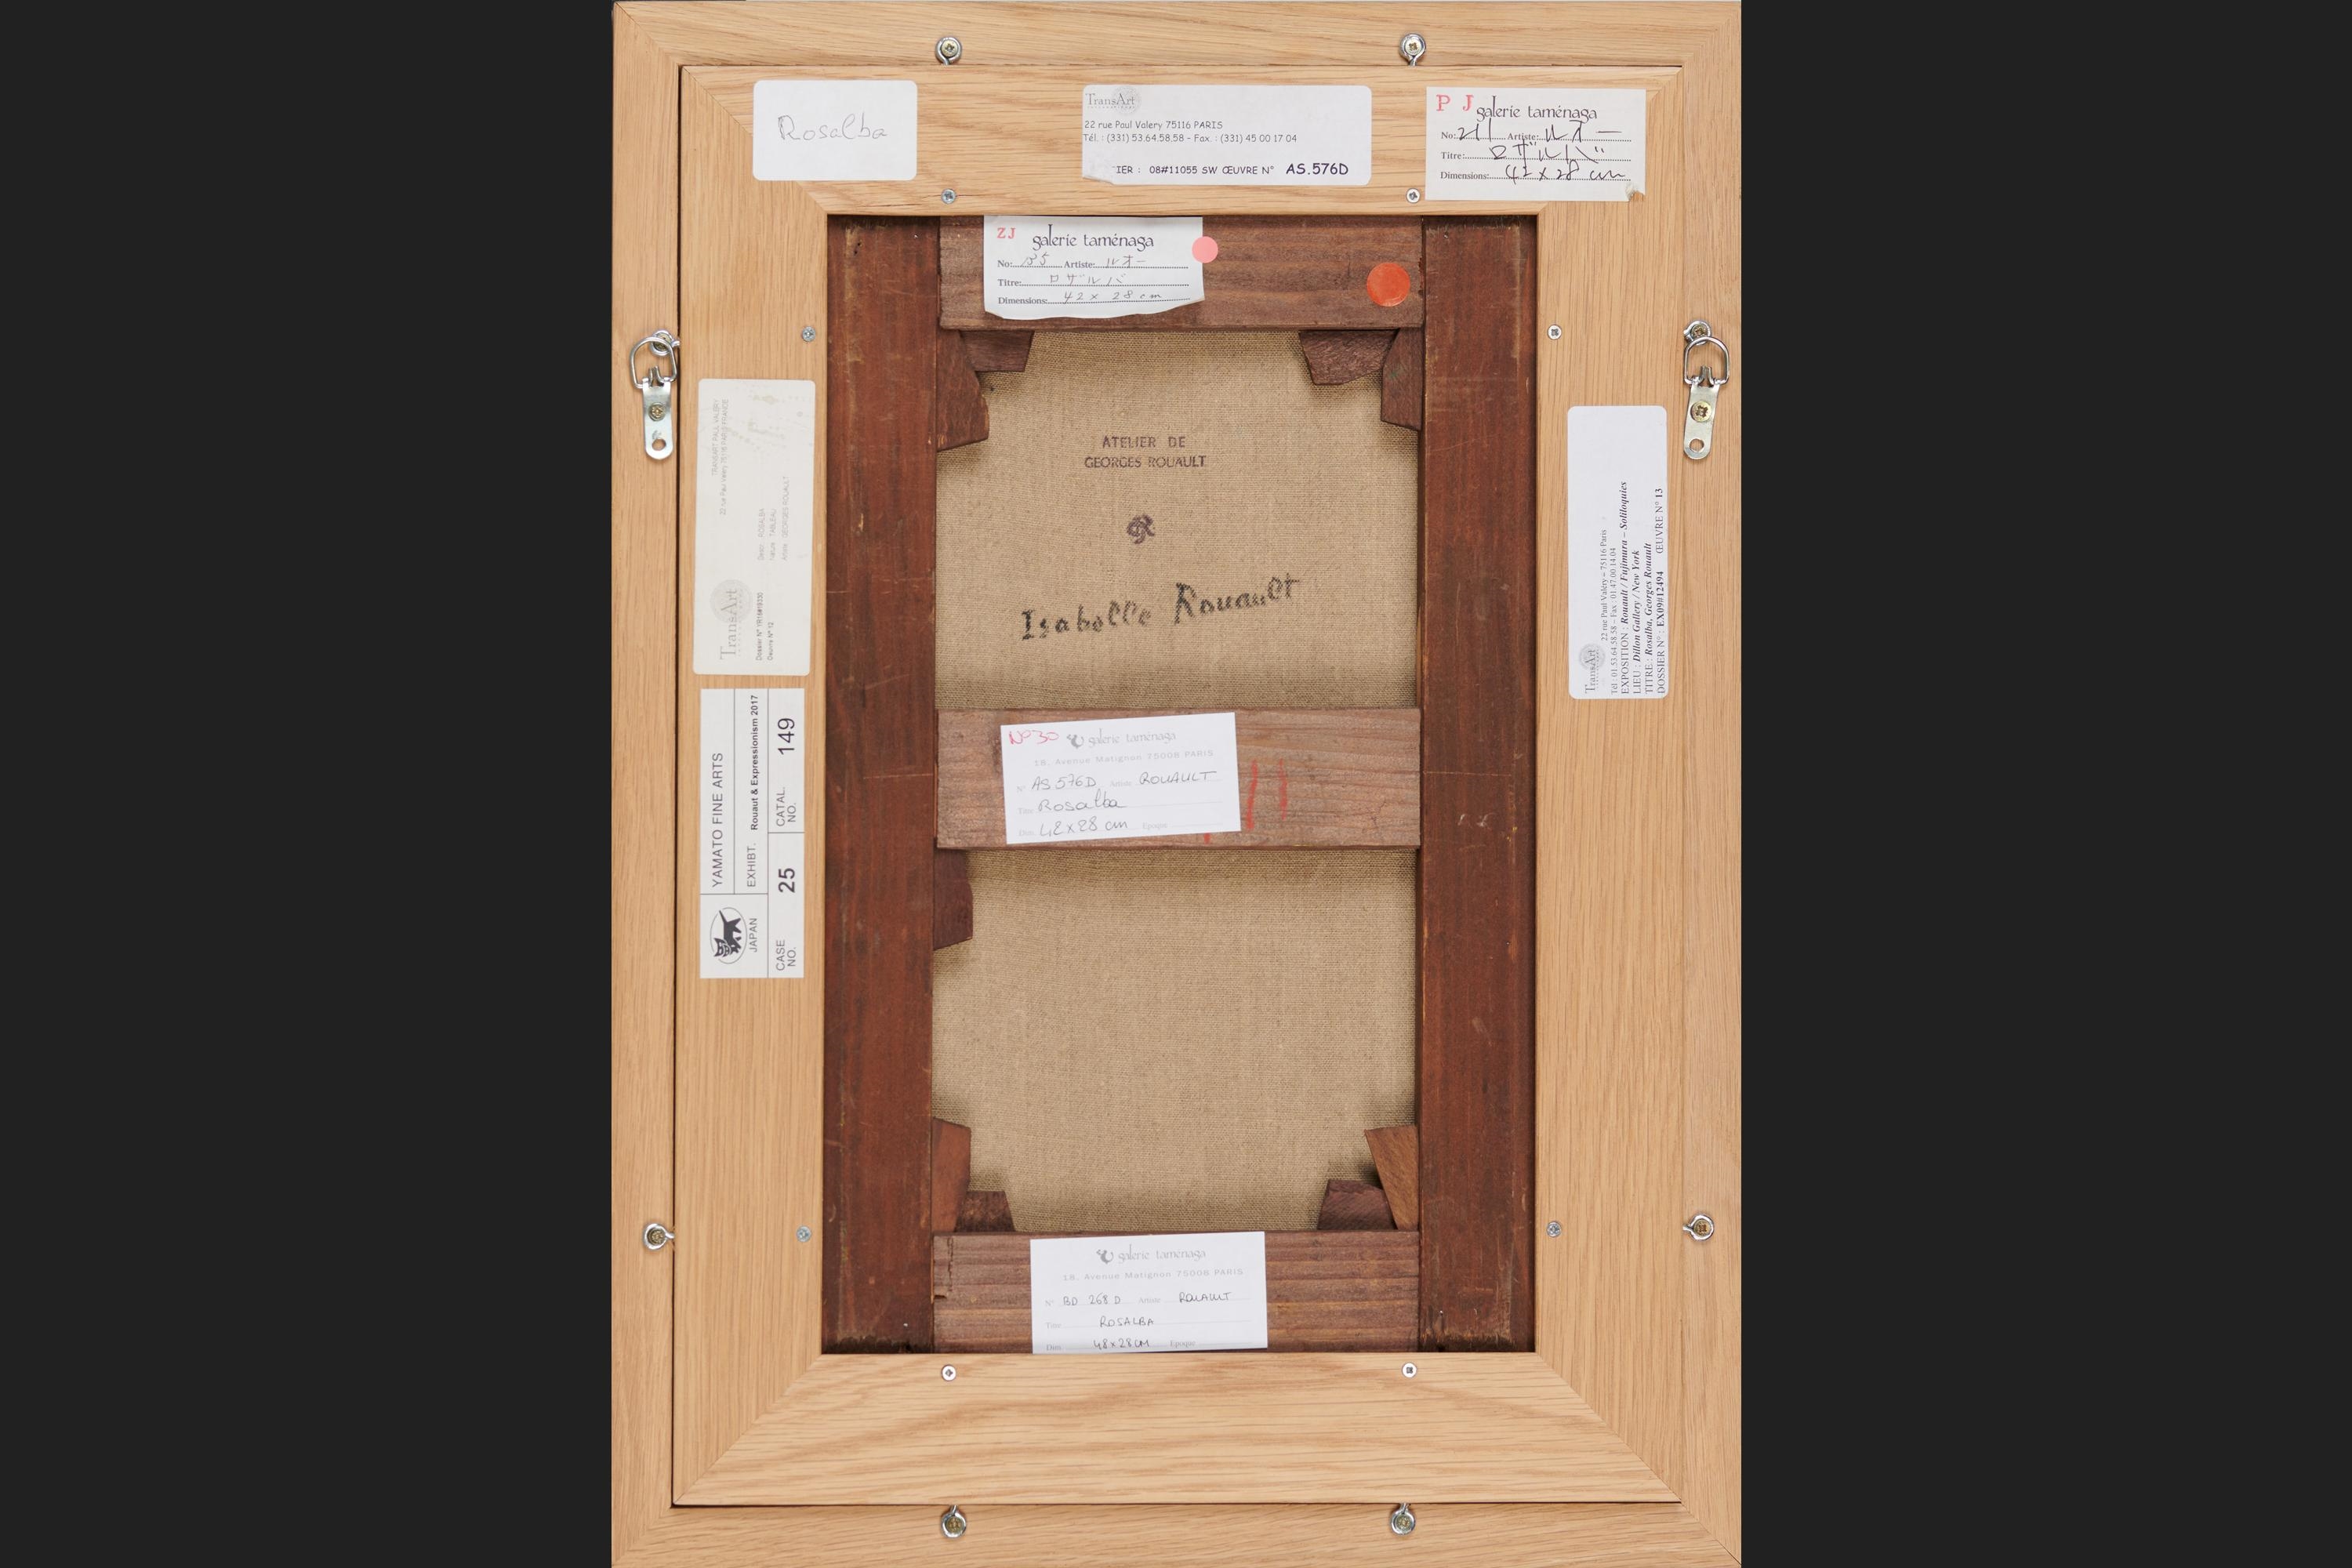 Rosalba
TransArt
22 rue Paul Valery 75116 PARIS
Tél. : (331) 53.64.58.58 - Fax. : (331) 45 00 17 04
IER : 08#11055 SW ŒUVRE N° AS.576D
P J galerie taménaga
No: 211 Artiste: ルオー
Titre: ロザルバ
Dimensions: 42 x 28 cm
ZJ galerie taménaga
No: 35 Artiste: ルオー
Titre: ロザルバ
Dimensions: 42 x 28 cm
ATELIER DE
GEORGES ROUAULT
GR
Isabelle Rouault
TRANSART PAUL VALERY
22 rue Paul Valery 75116 PARIS FRANCE
TransArt
Descr. : ROSALBA
Nature : TABLEAU
Artiste : GEORGES ROUAULT
Oeuvre N° 12
TransArt
22 rue Paul Valéry – 75116 Paris
Tél : 01.53.64.58.58 – Fax : 01.47.00.14.04
EXPOSITION : Rouault / Fujimura – Soliloquies
LIEU : Dillon Gallery / New York
TITRE : Rosalba, Georges Rouault
DOSSIER N° : EX09#12494 ŒUVRE N° 13
YAMATO FINE ARTS
JAPAN
EXHIBT. Rouaut & Expressionism 2017
CASE NO. 25
CATAL. NO. 149
N°30 galerie taménaga
18, Avenue Matignon 75008 PARIS
N° AS 576D Artiste ROUAULT
Titre Rosalba
Dim 42x28 cm Epoque
galerie taménaga
18, Avenue Matignon 75008 PARIS
N° BD 268 D Artiste ROUAULT
Titre ROSALBA
Dim 48x28CM Epoque